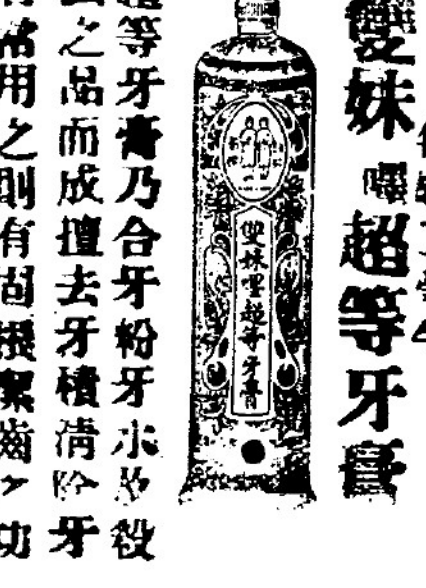 雙妹嚜超等牙膏
雙妹嚜超等牙膏
等牙膏乃合牙粉牙水殺
之品而成擅去牙積清除牙
常用之則有固根潔齒之功